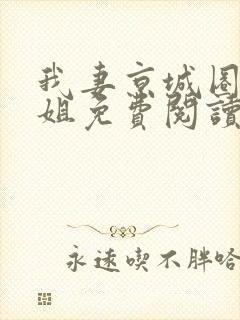 我妻京城圈
姐免費閱讀
永遠喫不胖哈